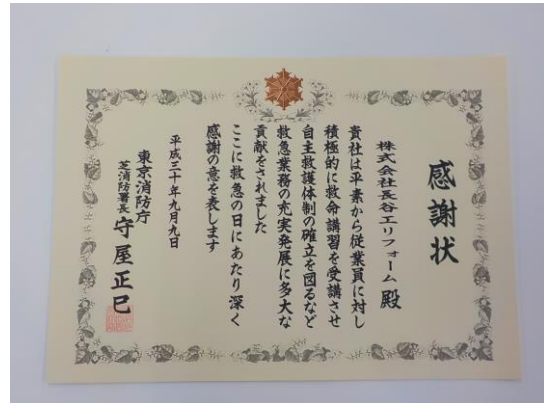 感謝状
株式会社長谷工リフォーム 殿
貴社は平素から従業員に対し
積極的に救命講習を受講させ
自主救護体制の確立を図るなど
救急業務の充実発展に多大な
貢献をされました
ここに救急の日にあたり深く
感謝の意を表します
平成三十年九月九日
東京消防庁
芝消防署長 守屋正巳